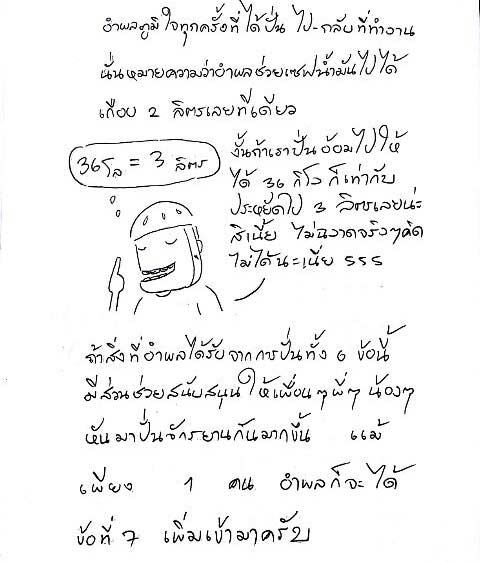 อำพลภูมิใจทุกครั้งที่ได้ปั่น ไป-กลับที่ทำงาน
นั่นหมายความว่าอำพลช่วยเซฟน้ำมันไปได้
เกือบ 2 ลิตรเลยทีเดียว
36โล = 3 ลิตร
งั้นถ้าเราปั่นอ้อมไปให้
ได้ 36 กิโล ก็เท่ากับ
ประหยัดไป 3 ลิตรเลยน่ะ
สิเนี้ย ไม่ฉลาดจริงๆคิด
ไม่ได้นะเนี่ย 555
ถ้าสิ่งที่อำพลได้รับจากการปั่นทั้ง 6 ข้อนี้
มีส่วนช่วยสนับสนุนให้เพื่อนๆ พี่ๆ น้องๆ
หันมาปั่นจักรยานกันมากขึ้น แม้
เพียง 1 คน อำพลก็จะได้
ข้อที่ 7 เพิ่มเข้ามาครับ